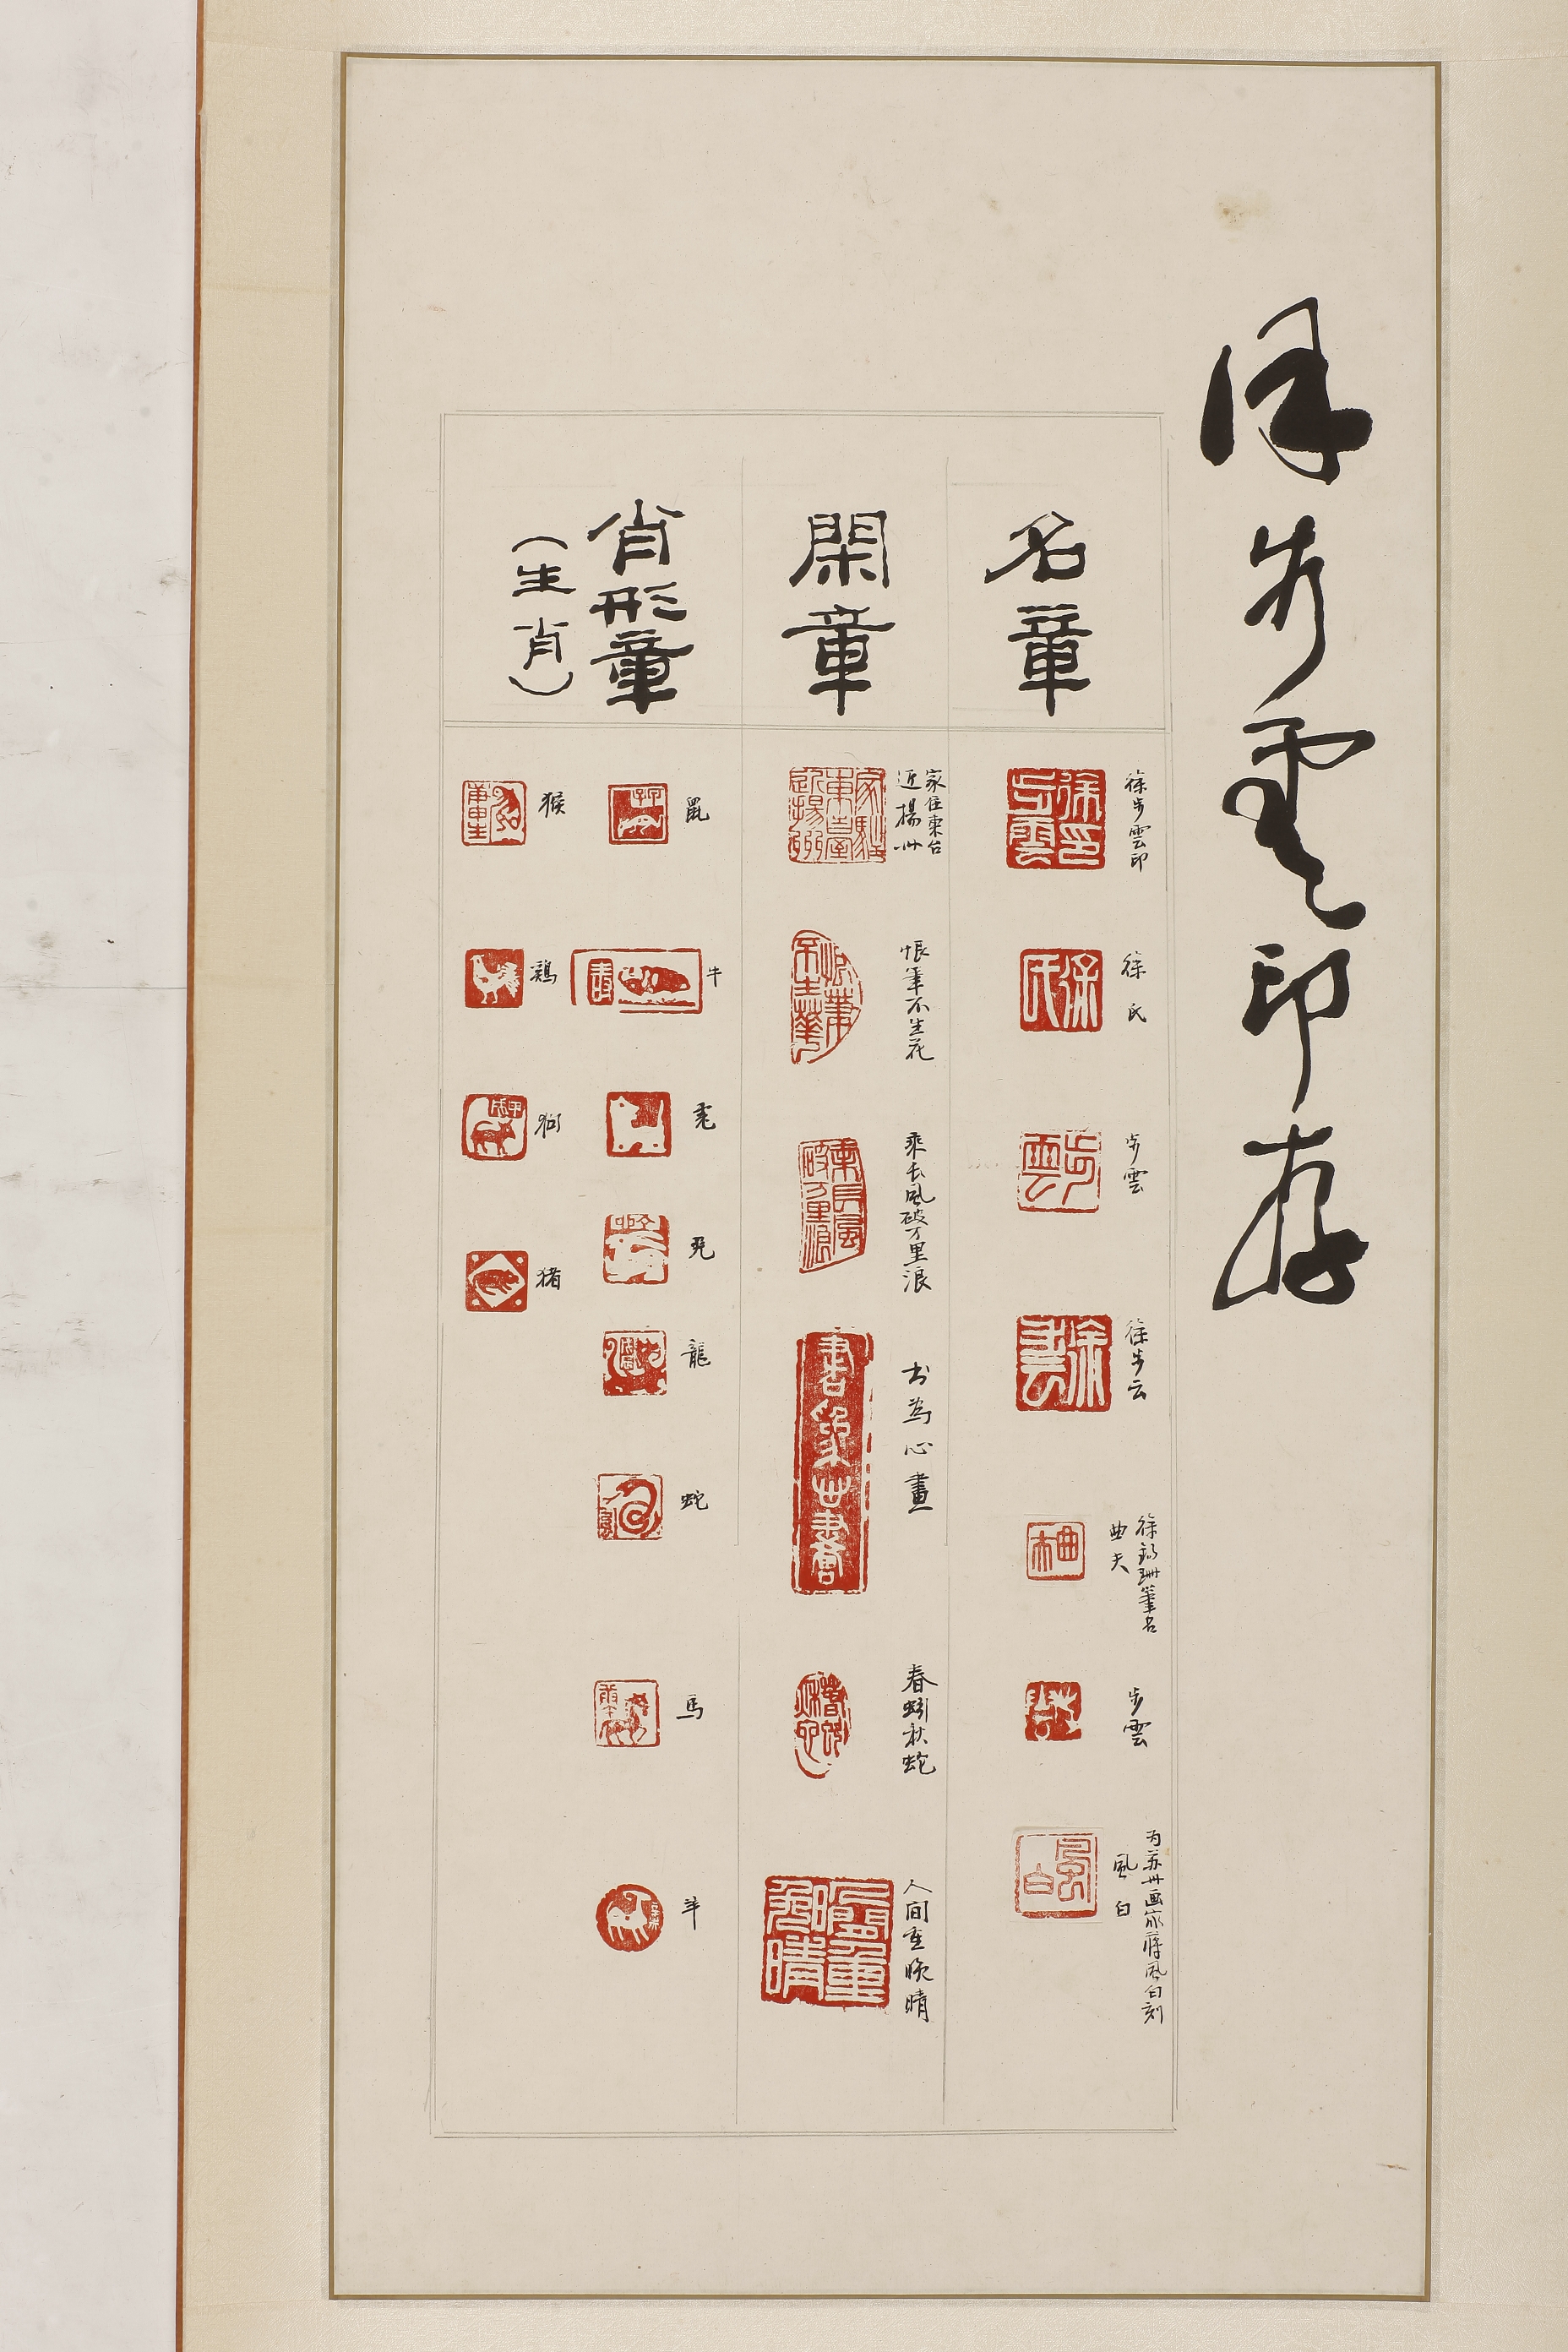 徐步雲印存
名章
徐步雲印
徐氏
步雲
徐步云
徐錫珊筆名
曲夫
步雲
为苏州画家蔣風白刻
風白
閑章
家住東台
近揚州
恨筆不生花
乘长風破万里浪
书為心畫
春蚓秋蛇
人间重晚晴
肖形章
(生肖)
鼠
牛
虎
兔
龍
蛇
馬
羊
猴
鷄
狗
猪